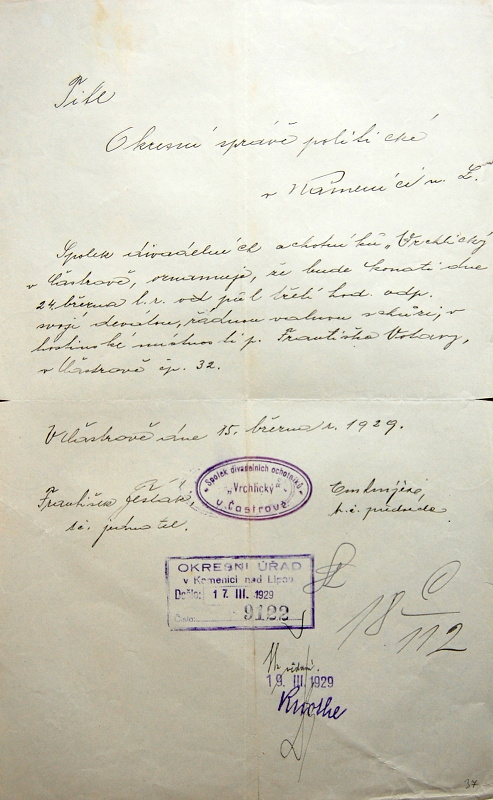 Titl.
Okresní správě politické
v Kamenici n. L.
Spolek divadelních ochotníků „Vrchlický
v Částrově, oznamuje, že bude konati dne
24. března t.r. od půl třetí hod. odp.
svoji devátou, řádnou valnou schůzi, v
hostinské místnosti p. Františka Votavy,
v Částrově čp. 32.
V Částrově dne 15. března r. 1929.
Spolek divadelních ochotníků
„Vrchlický"
v Částrově
František
t.č. jednatel.
t.č. předseda
OKRESNÍ ÚŘAD
v Kamenici nad Lipou
Došlo: 17. III. 1929
Číslo: 9122
18 112
19. III. 1929
37